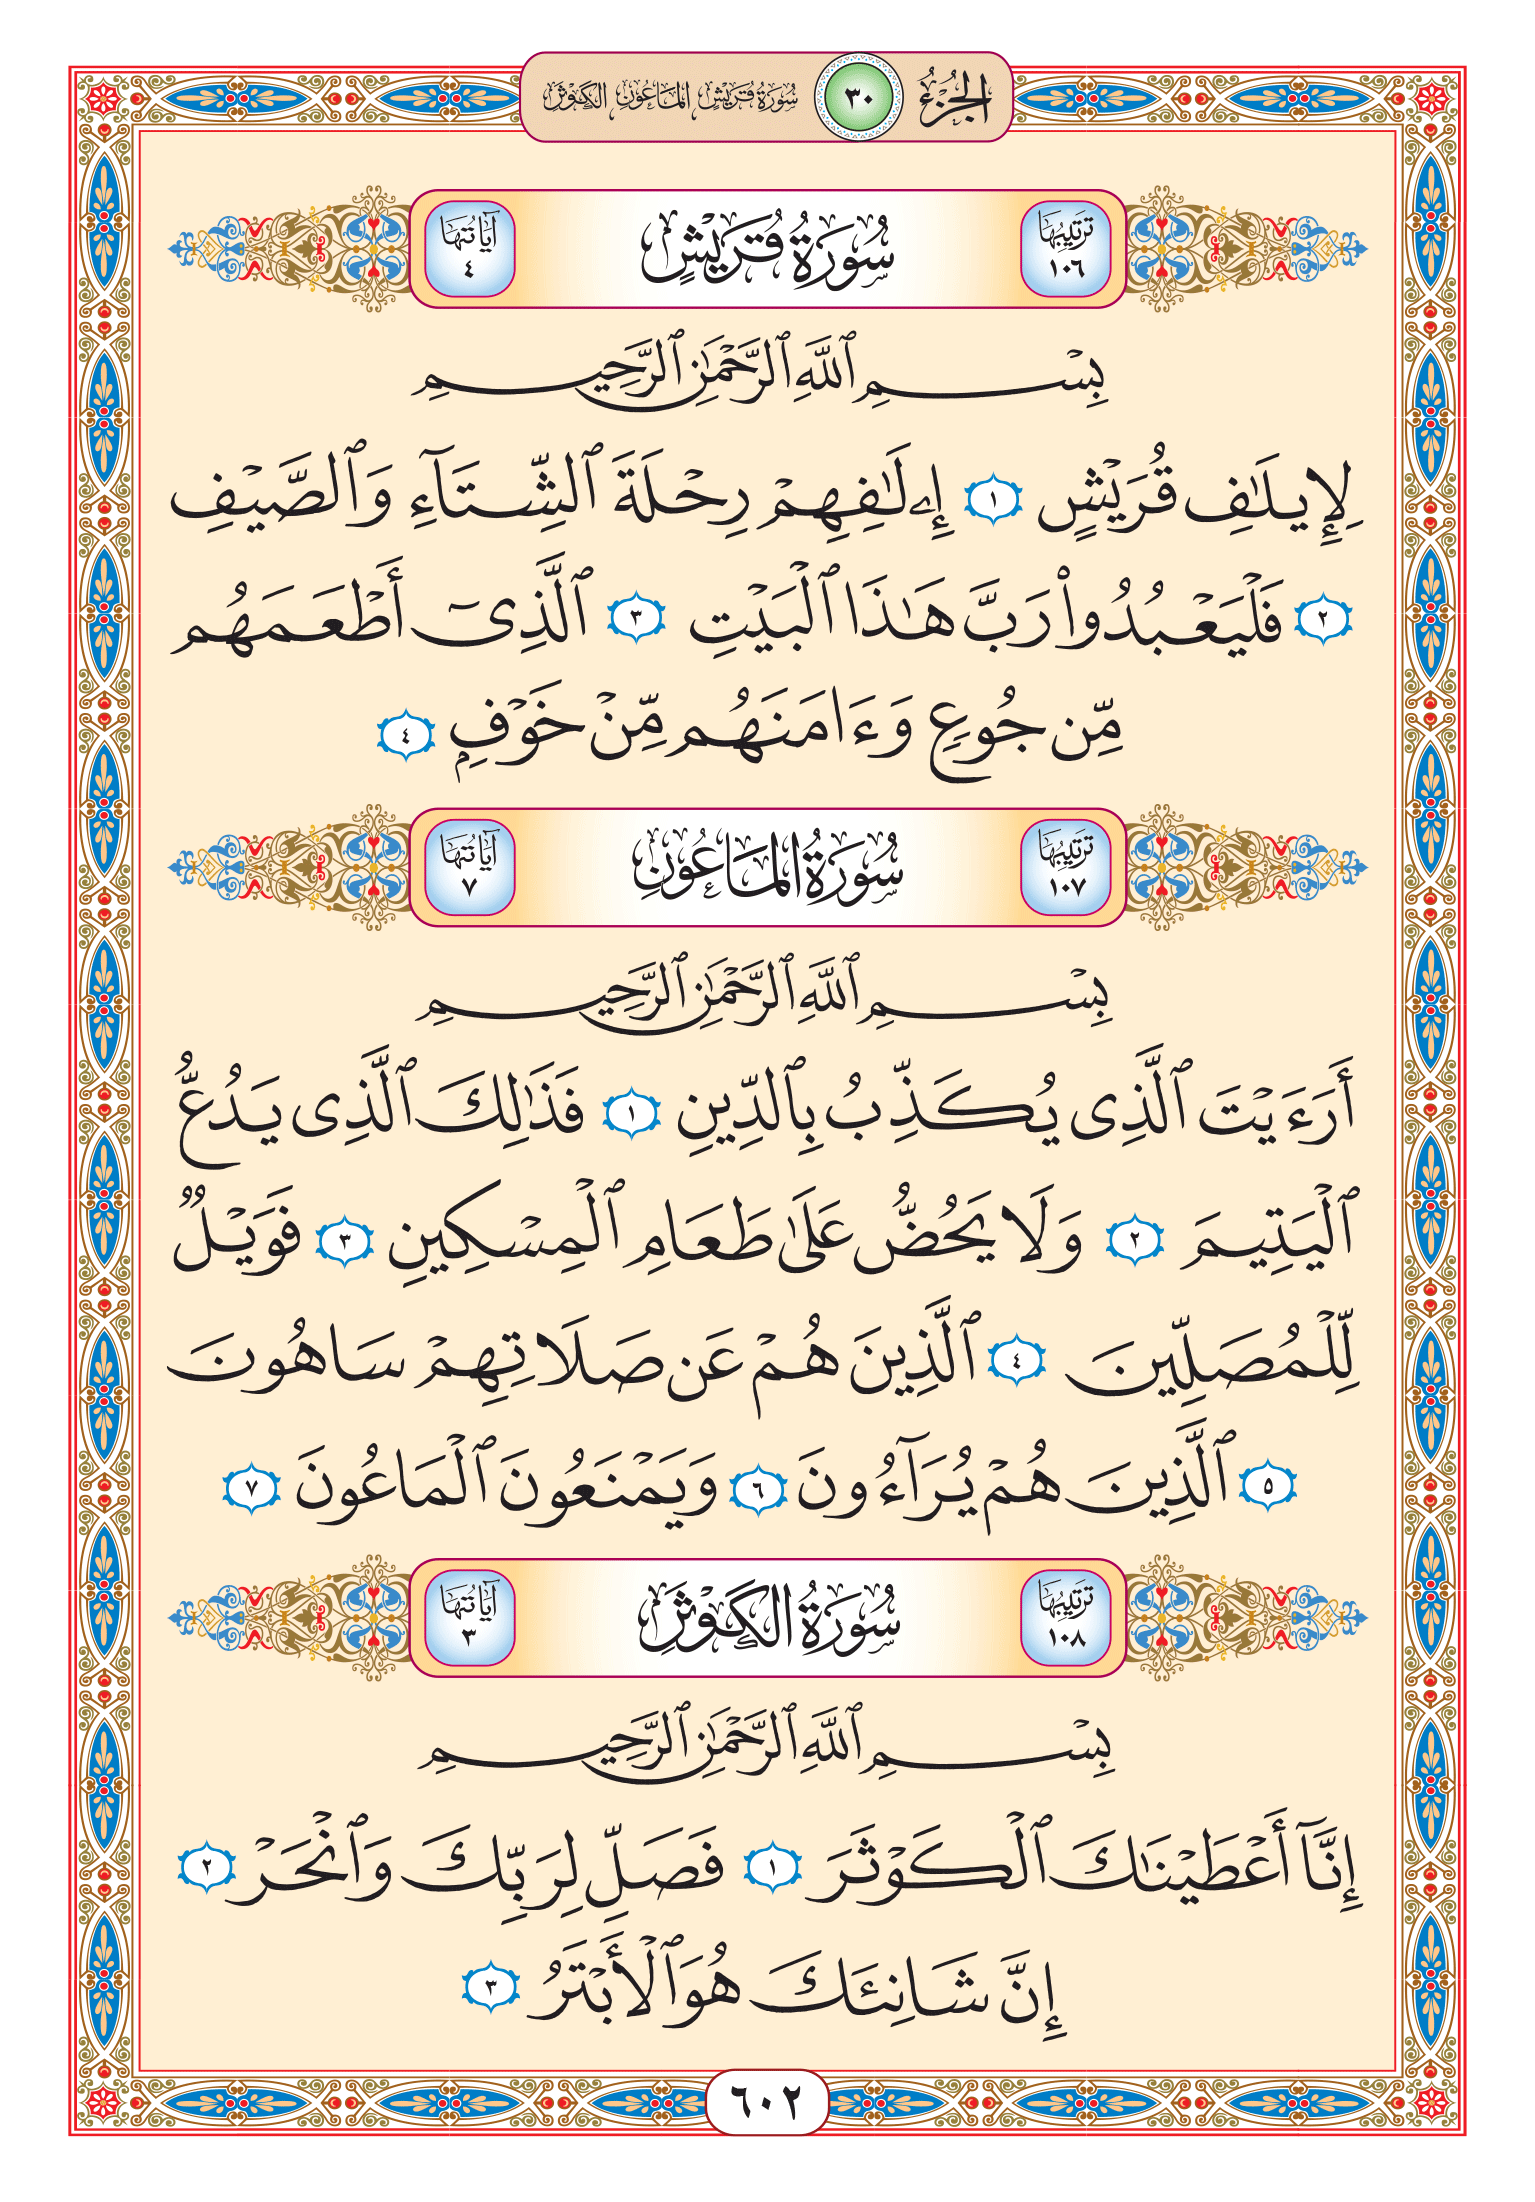 الجزء ٣٠ سورة قريش الماعون الكوثر
ترتيبها ١٠٦ سُورَةُ قُرَيْشٍ آيَاتُهَا ٤
بِسْمِ ٱللَّهِ ٱلرَّحْمَٰنِ ٱلرَّحِيمِ
لِإِيلَٰفِ قُرَيْشٍ ١ إِۦلَٰفِهِمْ رِحْلَةَ ٱلشِّتَآءِ وَٱلصَّيْفِ
٢ فَلْيَعْبُدُوا۟ رَبَّ هَٰذَا ٱلْبَيْتِ ٣ ٱلَّذِىٓ أَطْعَمَهُم
مِّن جُوعٍ وَءَامَنَهُم مِّنْ خَوْفٍۭ ٤
ترتيبها ١٠٧ سُورَةُ المَاعُونِ آيَاتُهَا ٧
بِسْمِ ٱللَّهِ ٱلرَّحْمَٰنِ ٱلرَّحِيمِ
أَرَءَيْتَ ٱلَّذِى يُكَذِّبُ بِٱلدِّينِ ١ فَذَٰلِكَ ٱلَّذِى يَدُعُّ
ٱلْيَتِيمَ ٢ وَلَا يَحُضُّ عَلَىٰ طَعَامِ ٱلْمِسْكِينِ ٣ فَوَيْلٌ
لِّلْمُصَلِّينَ ٤ ٱلَّذِينَ هُمْ عَن صَلَاتِهِمْ سَاهُونَ
٥ ٱلَّذِينَ هُمْ يُرَآءُونَ ٦ وَيَمْنَعُونَ ٱلْمَاعُونَ ٧
ترتيبها ١٠٨ سُورَةُ الكَوْثَرِ آيَاتُهَا ٣
بِسْمِ ٱللَّهِ ٱلرَّحْمَٰنِ ٱلرَّحِيمِ
إِنَّآ أَعْطَيْنَٰكَ ٱلْكَوْثَرَ ١ فَصَلِّ لِرَبِّكَ وَٱنْحَرْ ٢
إِنَّ شَانِئَكَ هُوَ ٱلْأَبْتَرُ ٣
٦٠٢